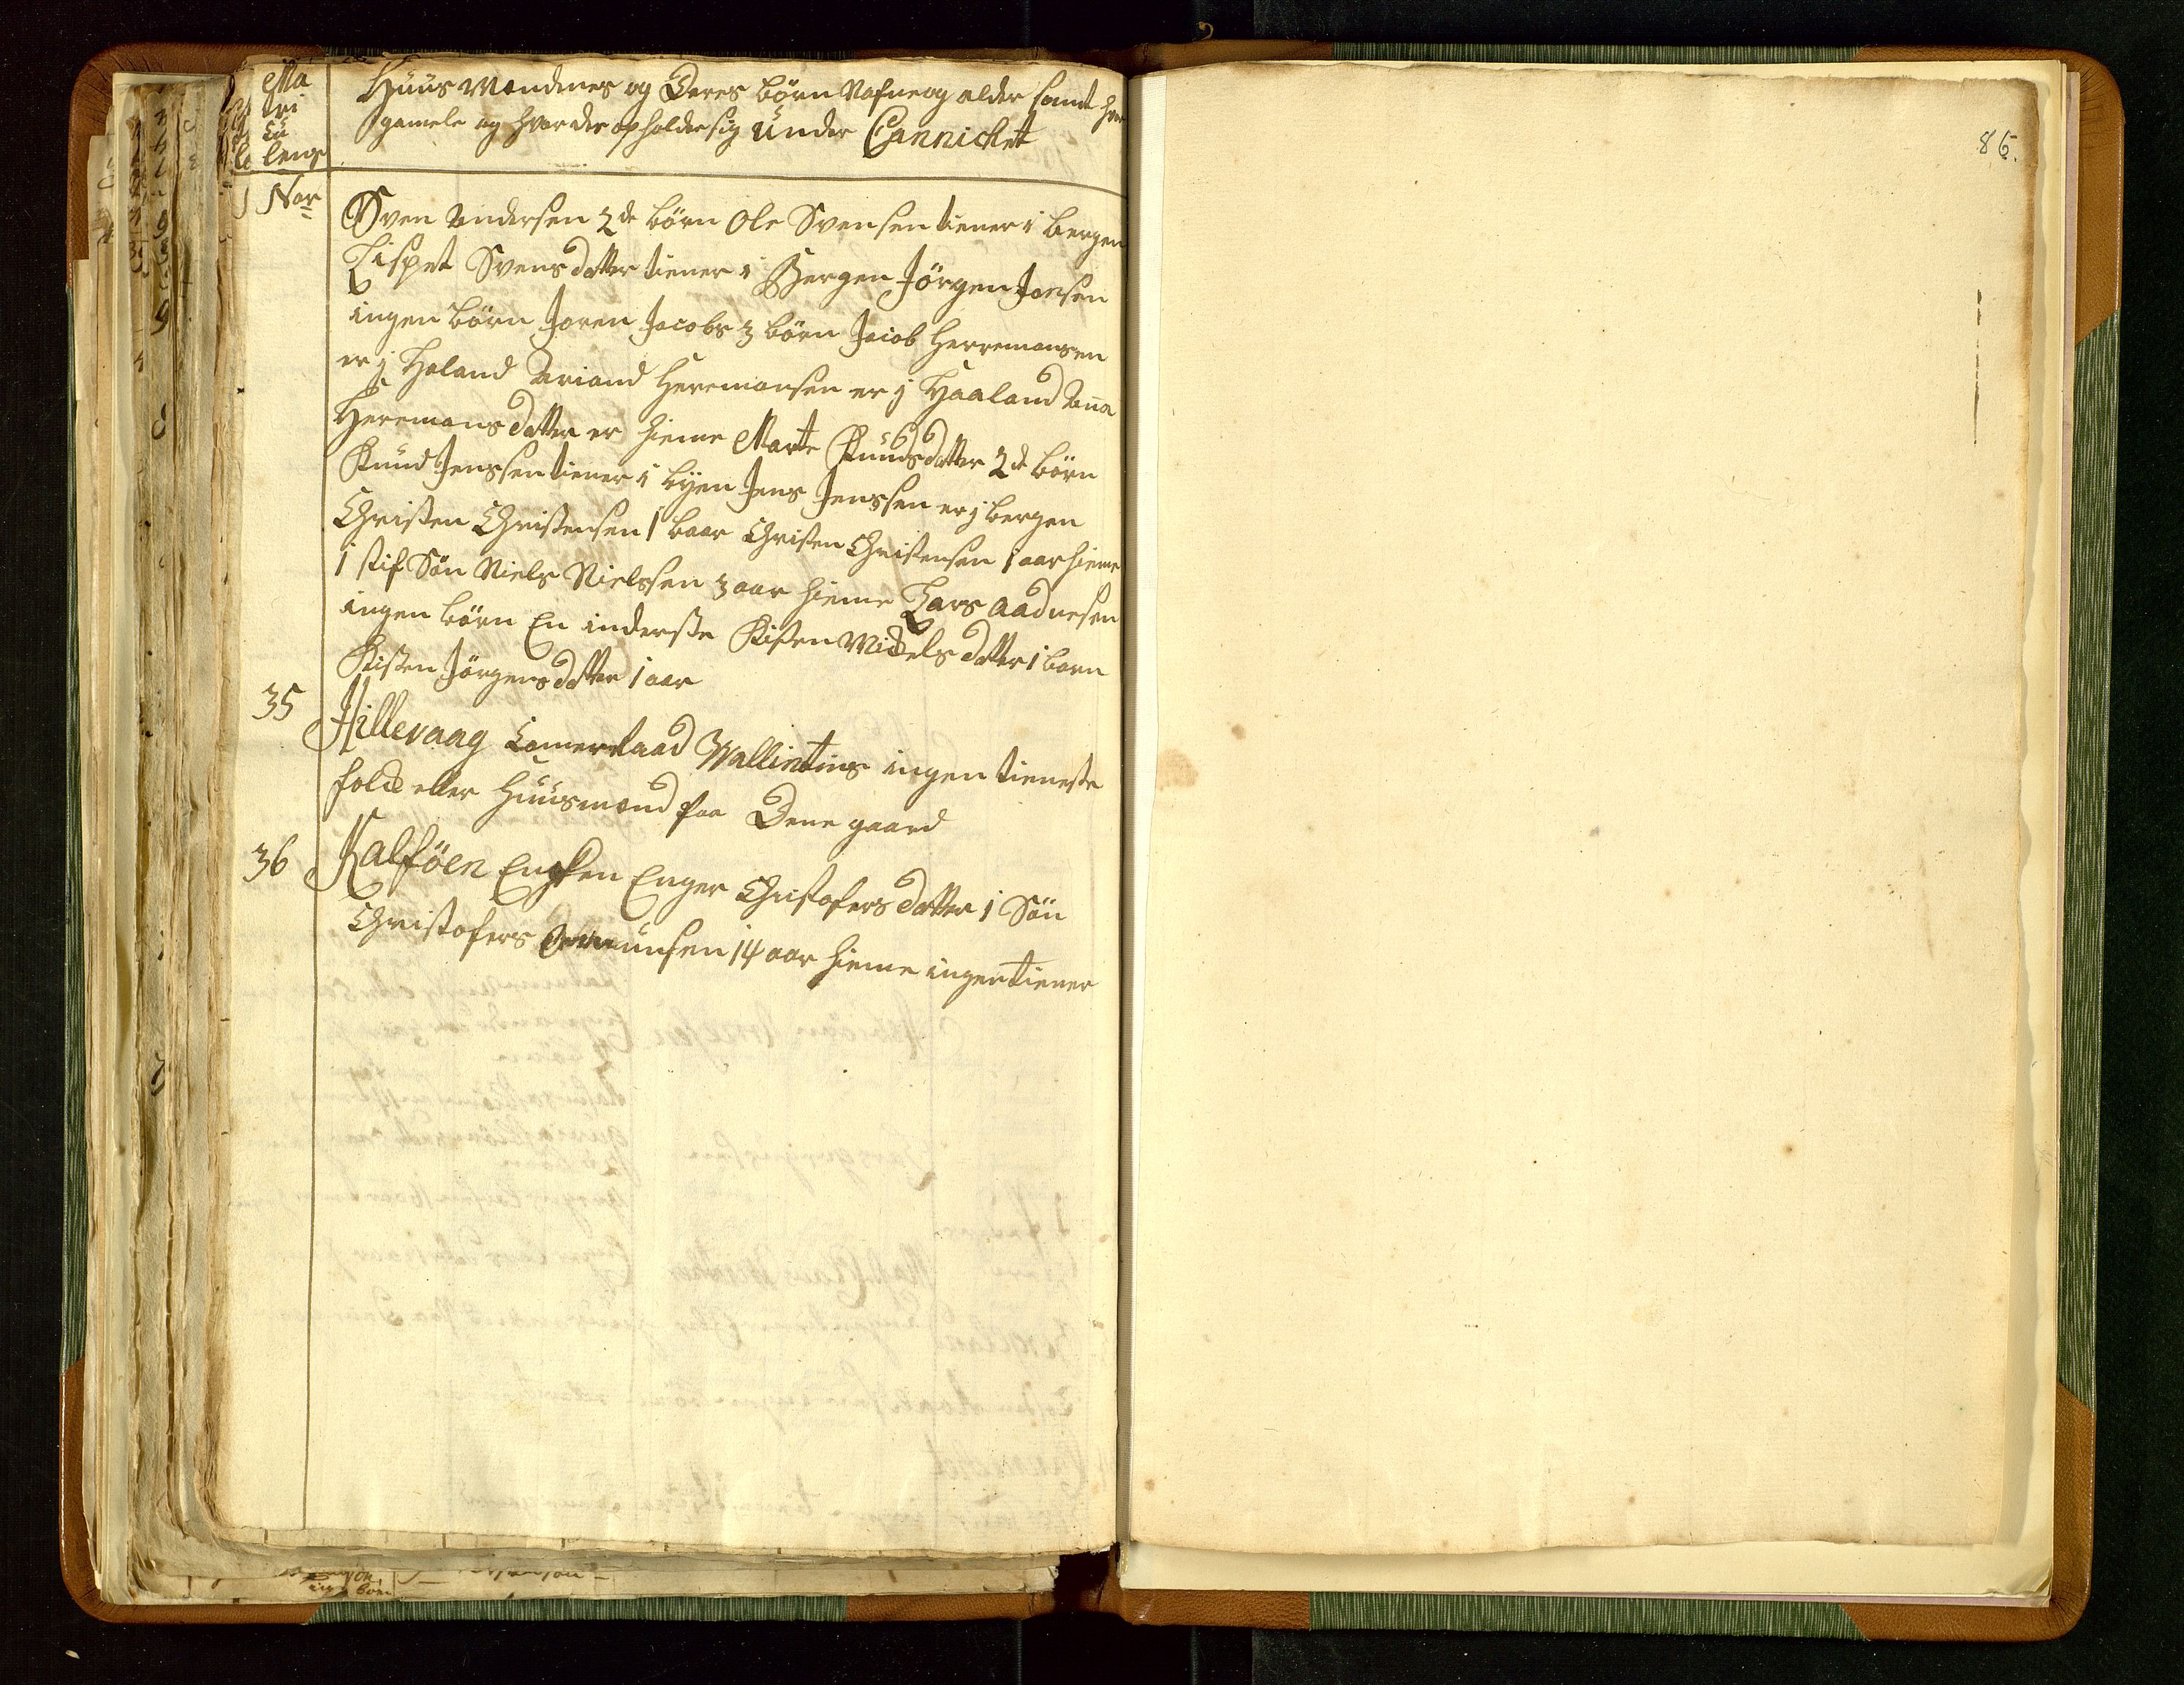 Ma
tri
cu
lens
Nor
Huus Mændenes og Deres börn Nafne og alder samt hvor
gamele og hvor der opholder sig under Cannichet
Sven Andersen 2de börn Ole Svensen tiener i bergen
Lispet Svens datter tiener i Bergen Jörgen Jonsen
ingen börn Joren Jacobs 3 börn Jacob Herremansen
er j Holand Ariand Herremansen er j Haaland Ana
Herremans datter er hieme Marte Knuds datter 2de börn
Knud Jenssen tiener i byen Jens Jenssen er j bergen
Christen Christensen 1 baar Christen Christensen 1 aar hieme
1 stif Sön Niels Nielssen 3 aar hieme Lars Aadnesen
ingen börn En inderste Kisten Mickels datter 1 barn
Kisten Jörgens datter 1 aar
35 Hillevaag Wallintins ingen tieneste
folck eller Huusmænd paa Dene gaard
36 Kalföen Enken Enger Christofers datter 1 Sön
Christofers 14 aar hieme ingen tiener
86.